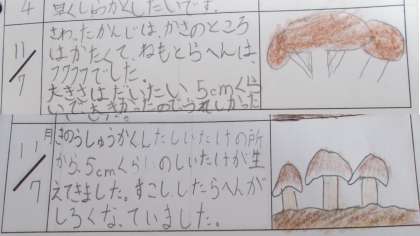 4
早くしゅうかくしたいです。
11/7
さわったかんじは、かさのところ
はかたくて、ねもとらへんは、
フワフワでした。
大きさはだいたい5cmくらい
11月
きのうしゅうかくしたしいたけの所
から、5cmくらいのしいたけが生
えてきました。すこししたらへんが
しろくなっていました。
11/7